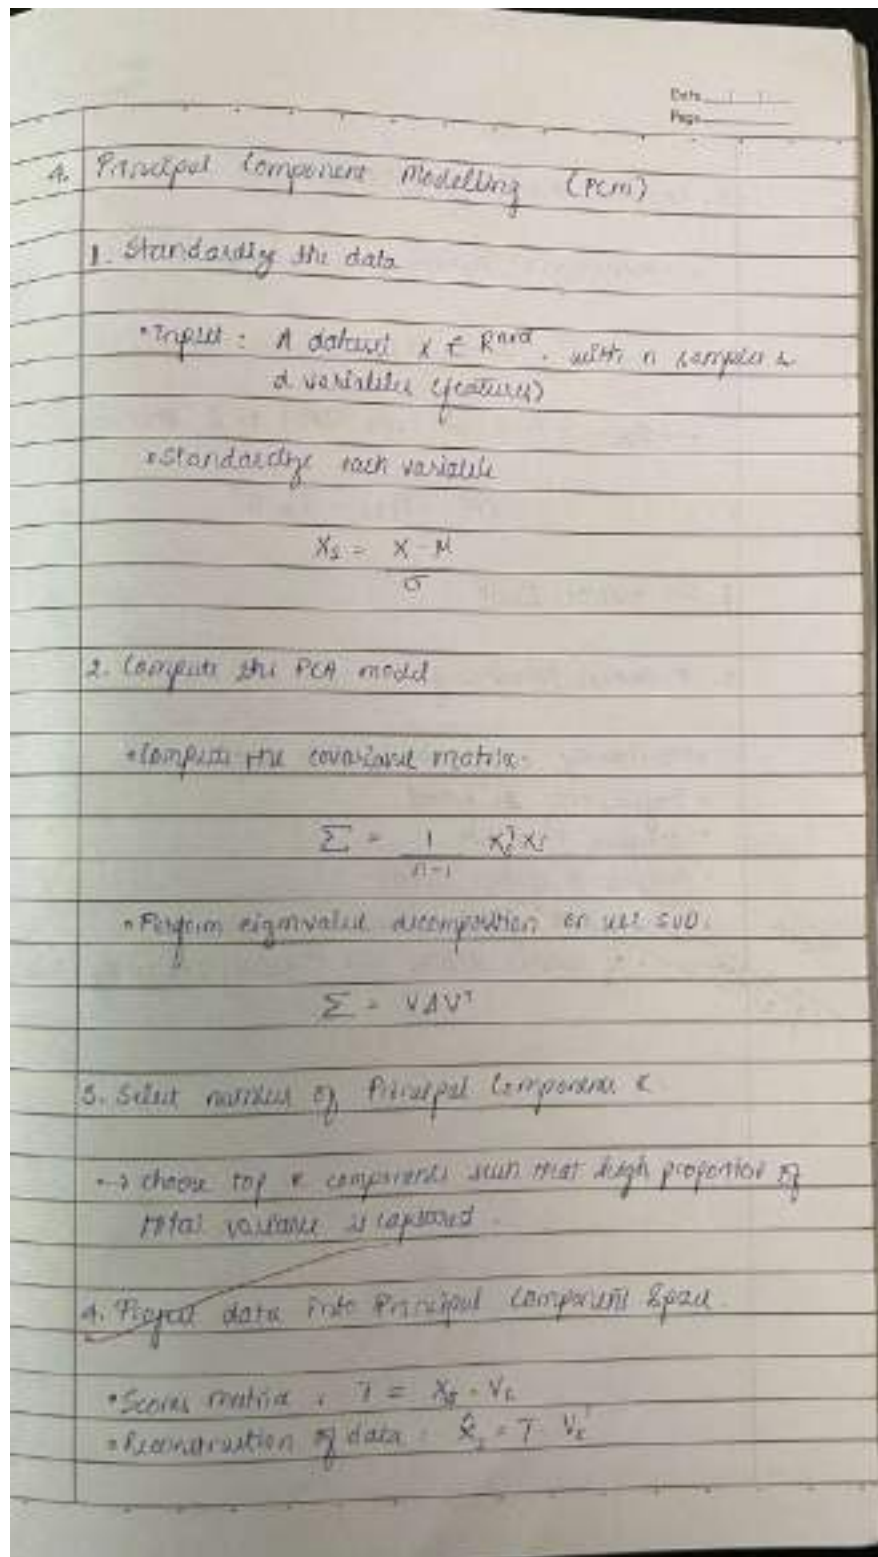 Date
Page
4. Principal Component Modelling (PCM)
1. Standardize the data
• Input : A dataset X ∈ R^nxd , with n samples &
d variables (features)
• Standardize each variable
Xs = X - μ
σ
2. Compute the PCA model
• Compute the covariance matrix.
Σ = 1 Xs^T Xs
n-1
• Perform eigenvalue decomposition or use SVD.
Σ = VΛV^T
3. Select number of Principal Components
• → choose top k components such that high proportion of
total variance is captured.
4. Project data into Principal Component Space
• Scores matrix : T = Xs · Vk
• Reconstruction of data : X̂s = T Vk^T